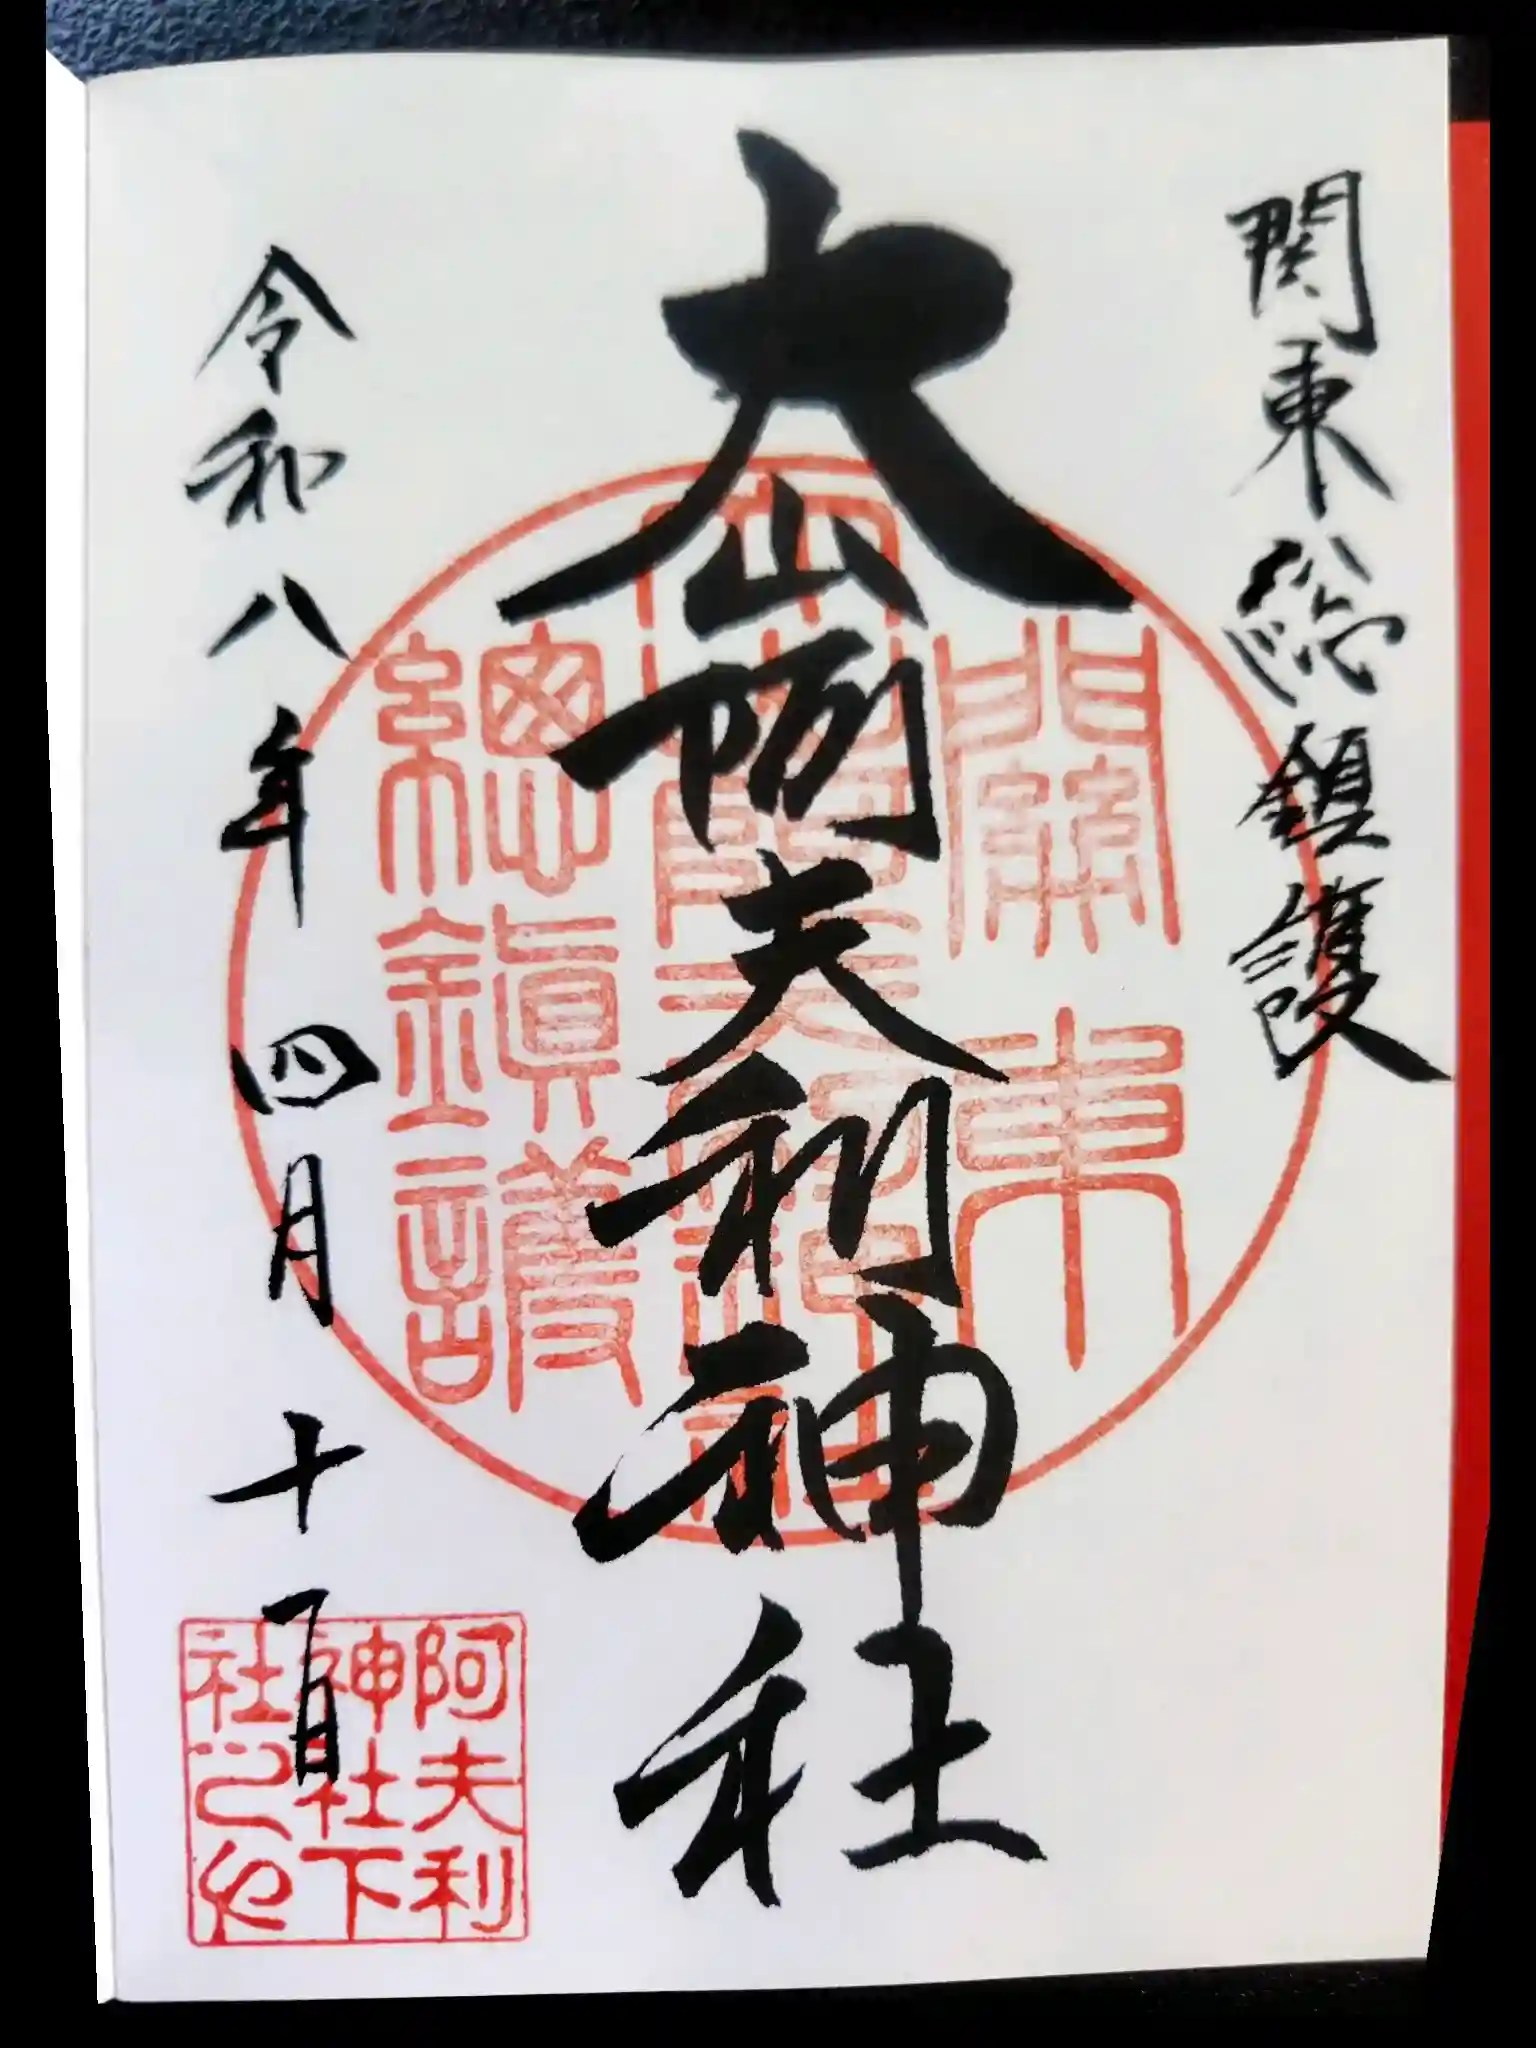 関東総鎮護
大山阿夫利神社
令和八年四月十一日
關東
總鎭護
阿夫利
神社下
社之印